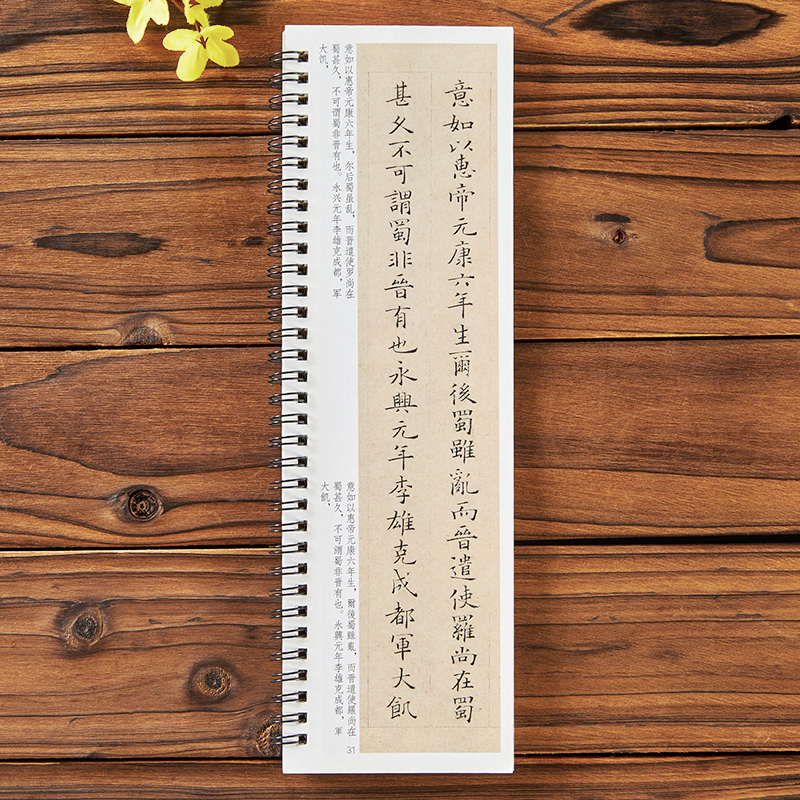 意如以惠帝元康六年生爾後蜀雖亂而晉遣使羅尚在蜀
甚久不可謂蜀非晉有也永興元年李雄克成都軍大飢
意如以惠帝元康六年生，尔后蜀虽乱，而晋遣使罗尚在
蜀甚久，不可谓蜀非晋有也。永兴元年李雄克成都，军
大饥，
意如以惠帝元康六年生，爾後蜀雖亂，而晋遣使羅尚在
蜀甚久，不可謂蜀非晋有也。永興元年李雄克成都，軍
大飢，
31